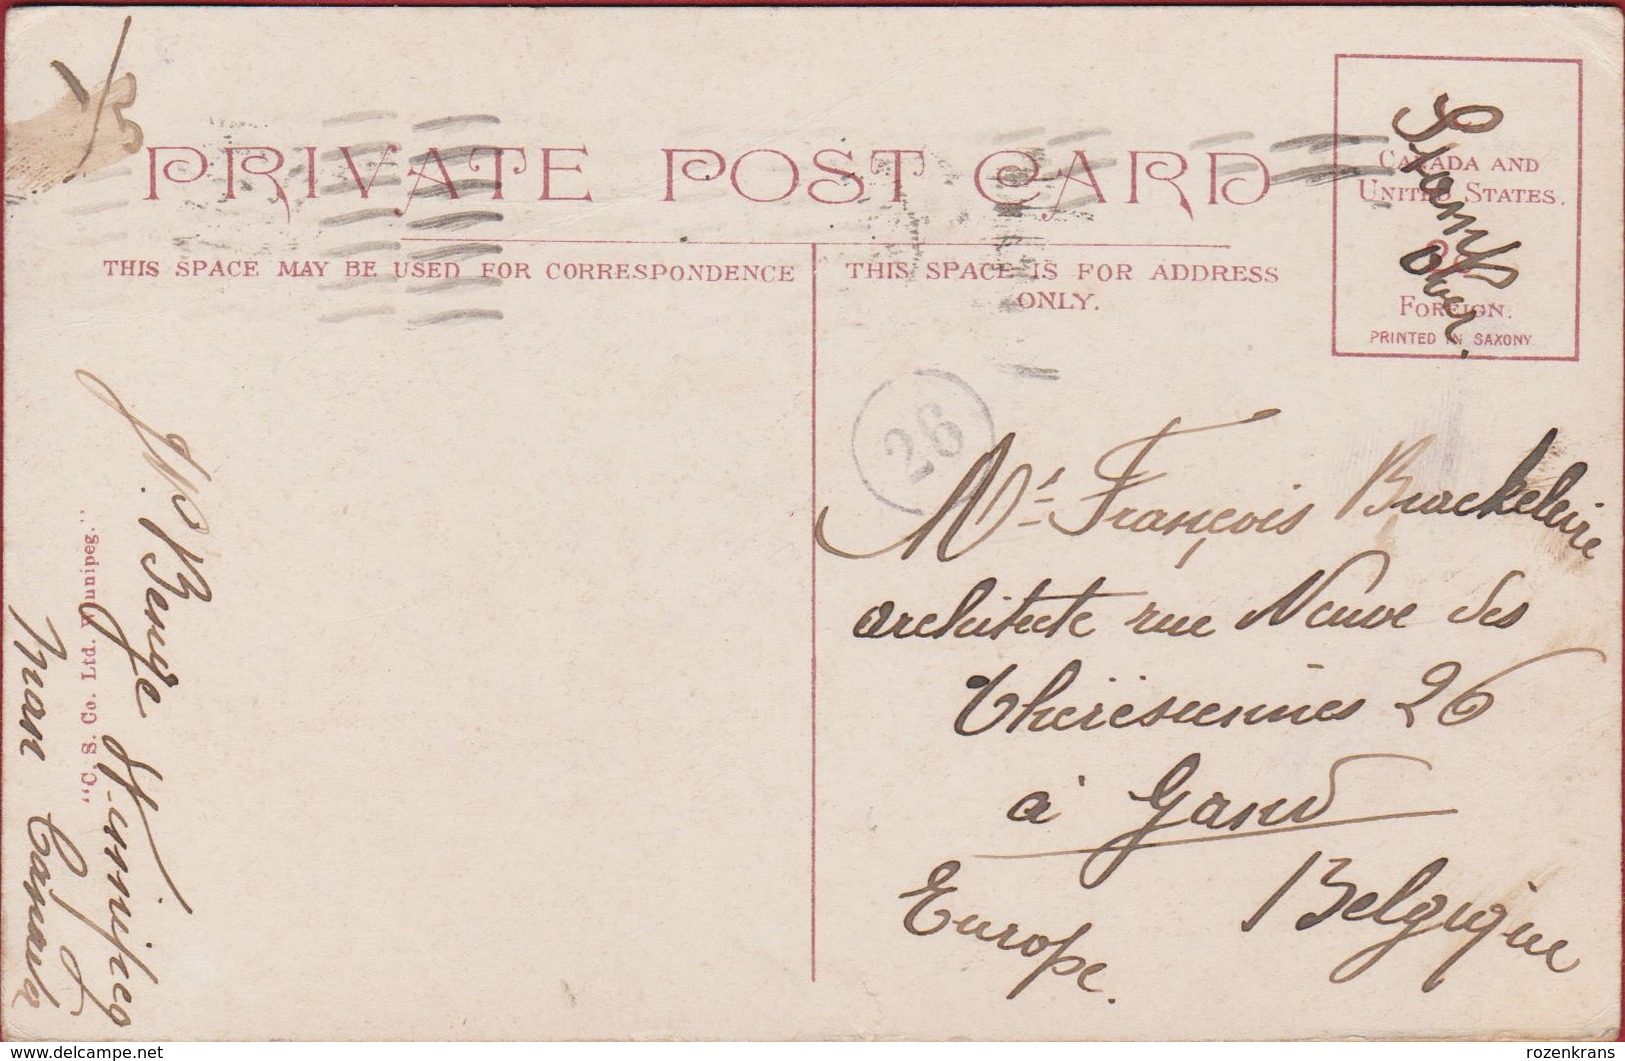 PRIVATE POST CARD
CANADA AND
UNITED STATES.
FOREIGN.
PRINTED IN SAXONY
Stamp
over.
THIS SPACE MAY BE USED FOR CORRESPONDENCE
THIS SPACE IS FOR ADDRESS
ONLY.
26
Mr François Brackeleire
architecte rue Neuve des
Thérésiennes 26
à Gand
Belgique
Europe.
Winnipeg
Man Canada
"C. S. Co. Ltd. Winnipeg."
rozenkrans
www.delcampe.net